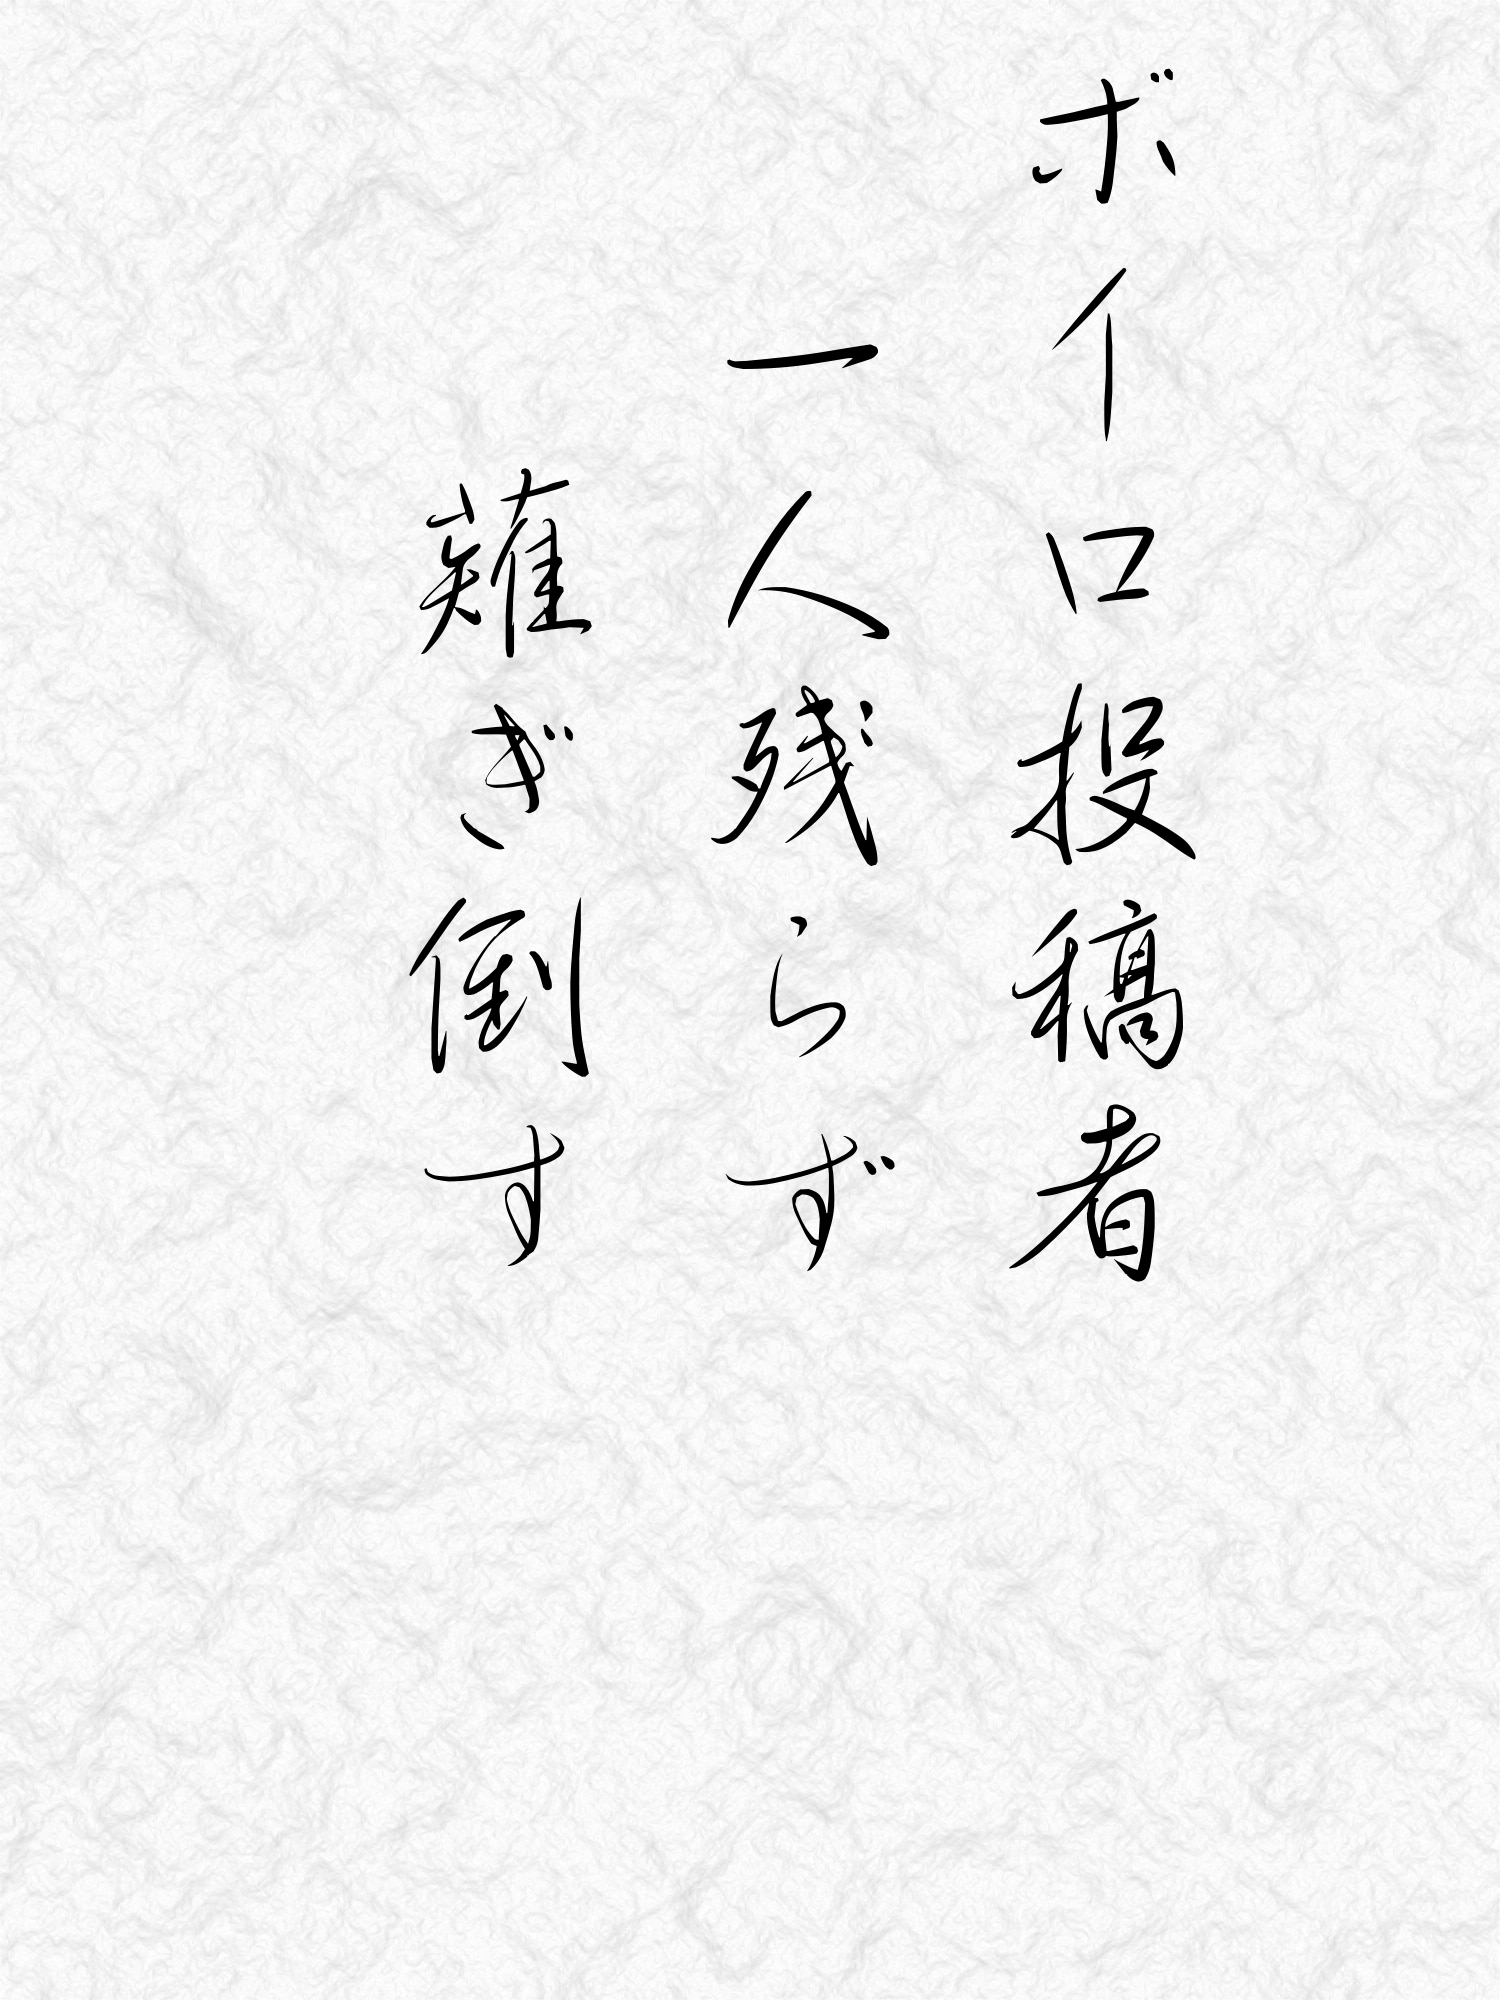 ボイロ投稿者
一人残らず
薙ぎ倒す